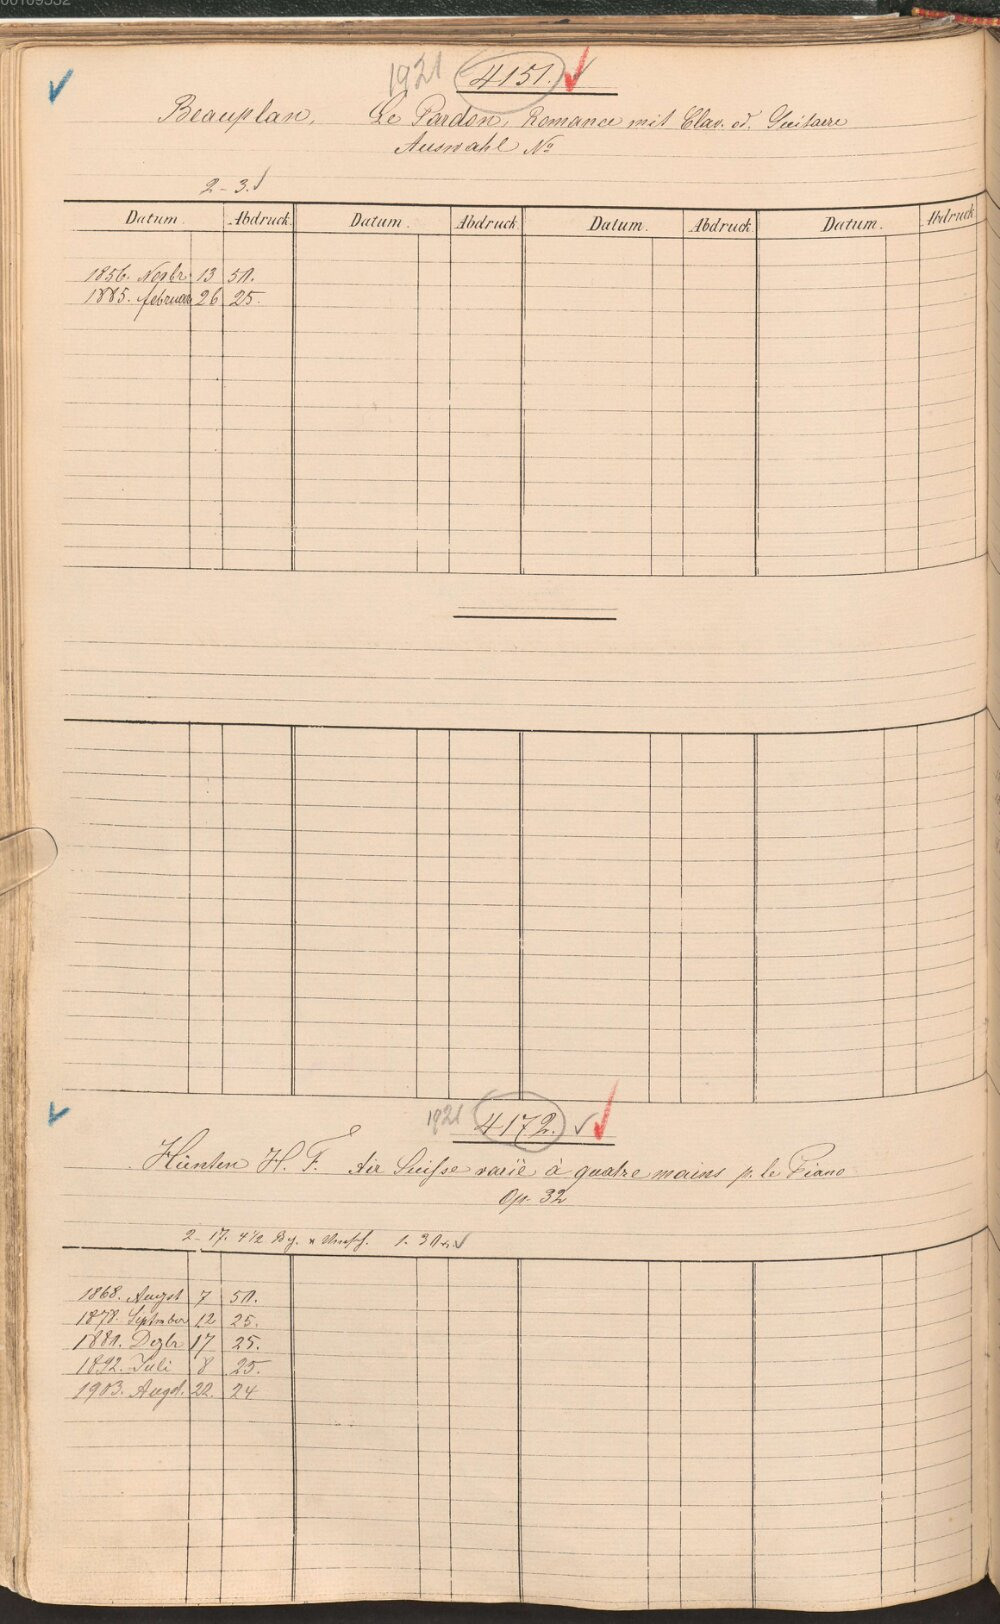 1921 4151.
Beauplan, Le Pardon, Romance mit Clav. od. Guitarre
Auswahl No
2-3.
Datum. Abdruck. Datum. Abdruck. Datum. Abdruck. Datum. Abdruck.
1856. Novbr. 13 50.
1885. februar 26 25.
1921 4172.
Hünten H. F. Air Suisse varié à quatre mains p. le Piano
Op. 32
2-17. 4 1/2 Bg. 1.30
1868. August 7 50.
1878. September 12 25.
1881. Dezbr 17 25.
1892. Juli 8 25.
1903. Augst. 22. 24